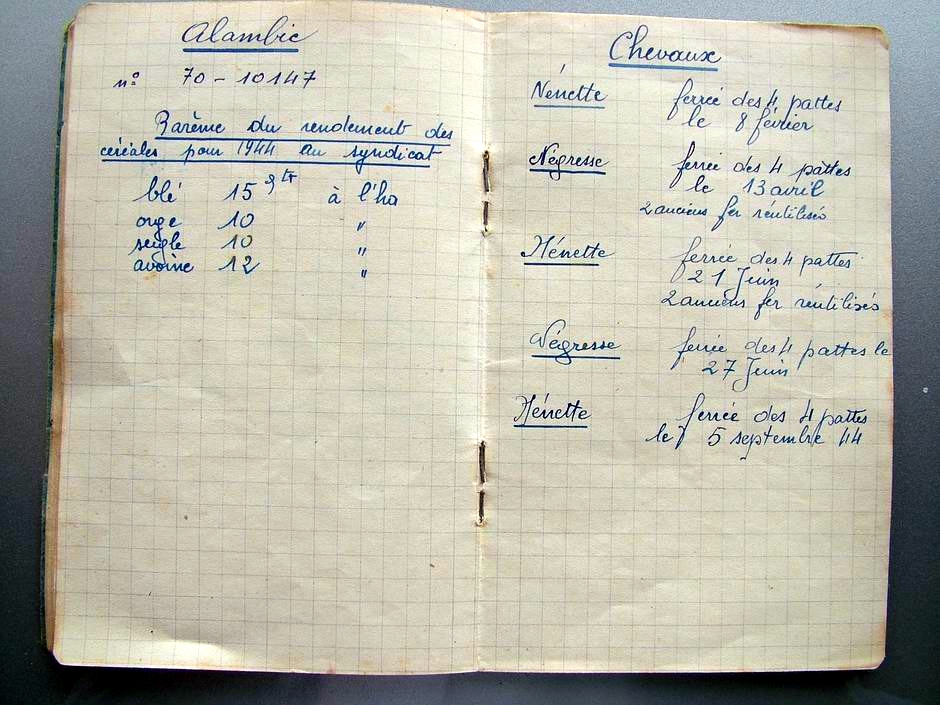 Alambic
n° 70-10147
Barème du rendement des
céréales pour 1944 au syndicat
blé 15 qtx à l'ha
orge 10 "
seigle 10 "
avoine 12 "
Chevaux
Nénette ferrée des 4 pattes
le 8 février
Négresse ferrée des 4 pattes
le 13 avril
2 anciens fer réutilisés
Nénette ferrée des 4 pattes
21 Juin
2 anciens fer réutilisés
Négresse ferrée des 4 pattes le
27 Juin
Nénette ferrée des 4 pattes
le 5 septembre 44